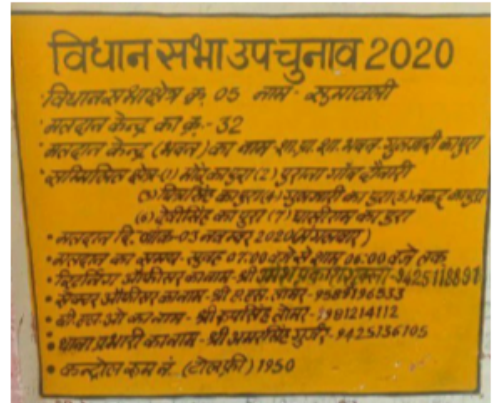 विधान सभा उप चुनाव 2020
विधानसभा क्षेत्र क्र. 05 नाम - सुमावली
मतदान केन्द्र का क्र. - 32
मतदान केन्द्र (भवन) का नाम - शा. प्रा. शा. भवन गुलजारी का पुरा
सम्मिलित क्षेत्र - (1) का पुरा (2) पुराना गाँव
(3) का पुरा (4) गुलजारी का पुरा (5) का पुरा
(6) देवीसिंह का पुरा (7) घासीराम का पुरा
• मतदान दिनाँक - 03 नवम्बर 2020 (मंगलवार)
• मतदान का समय - सुबह 07:00 बजे से शाम 06:00 बजे तक
• रिटर्निंग ऑफीसर का नाम - श्री उमेश प्रकाश शुक्ला -
• सेक्टर ऑफीसर का नाम - श्री तोमर -
• बी.एल.ओ का नाम - श्री रूपसिंह तोमर -
• थाना प्रभारी का नाम - श्री अमरसिंह गुर्जर - 9425136705
• कन्ट्रोल रूम नं. (टोल फ्री) 1950